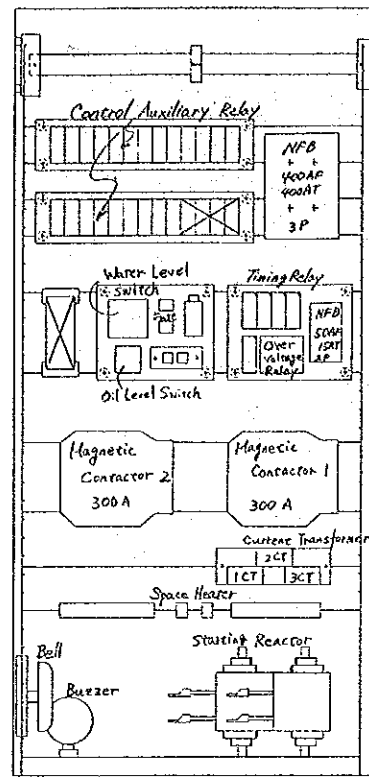 Control Auxiliary Relay
NFB
400AF
400AT
3P
Water Level
Switch
Timing Relay
NFB
50AF
15AT
2P
Over
Voltage
Relay
Oil Level Switch
Magnetic
Contactor 2
300A
Magnetic
Contactor 1
300A
Current Transformer
2CT
1CT
3CT
Space Heater
Bell
Buzzer
Starting Reactor